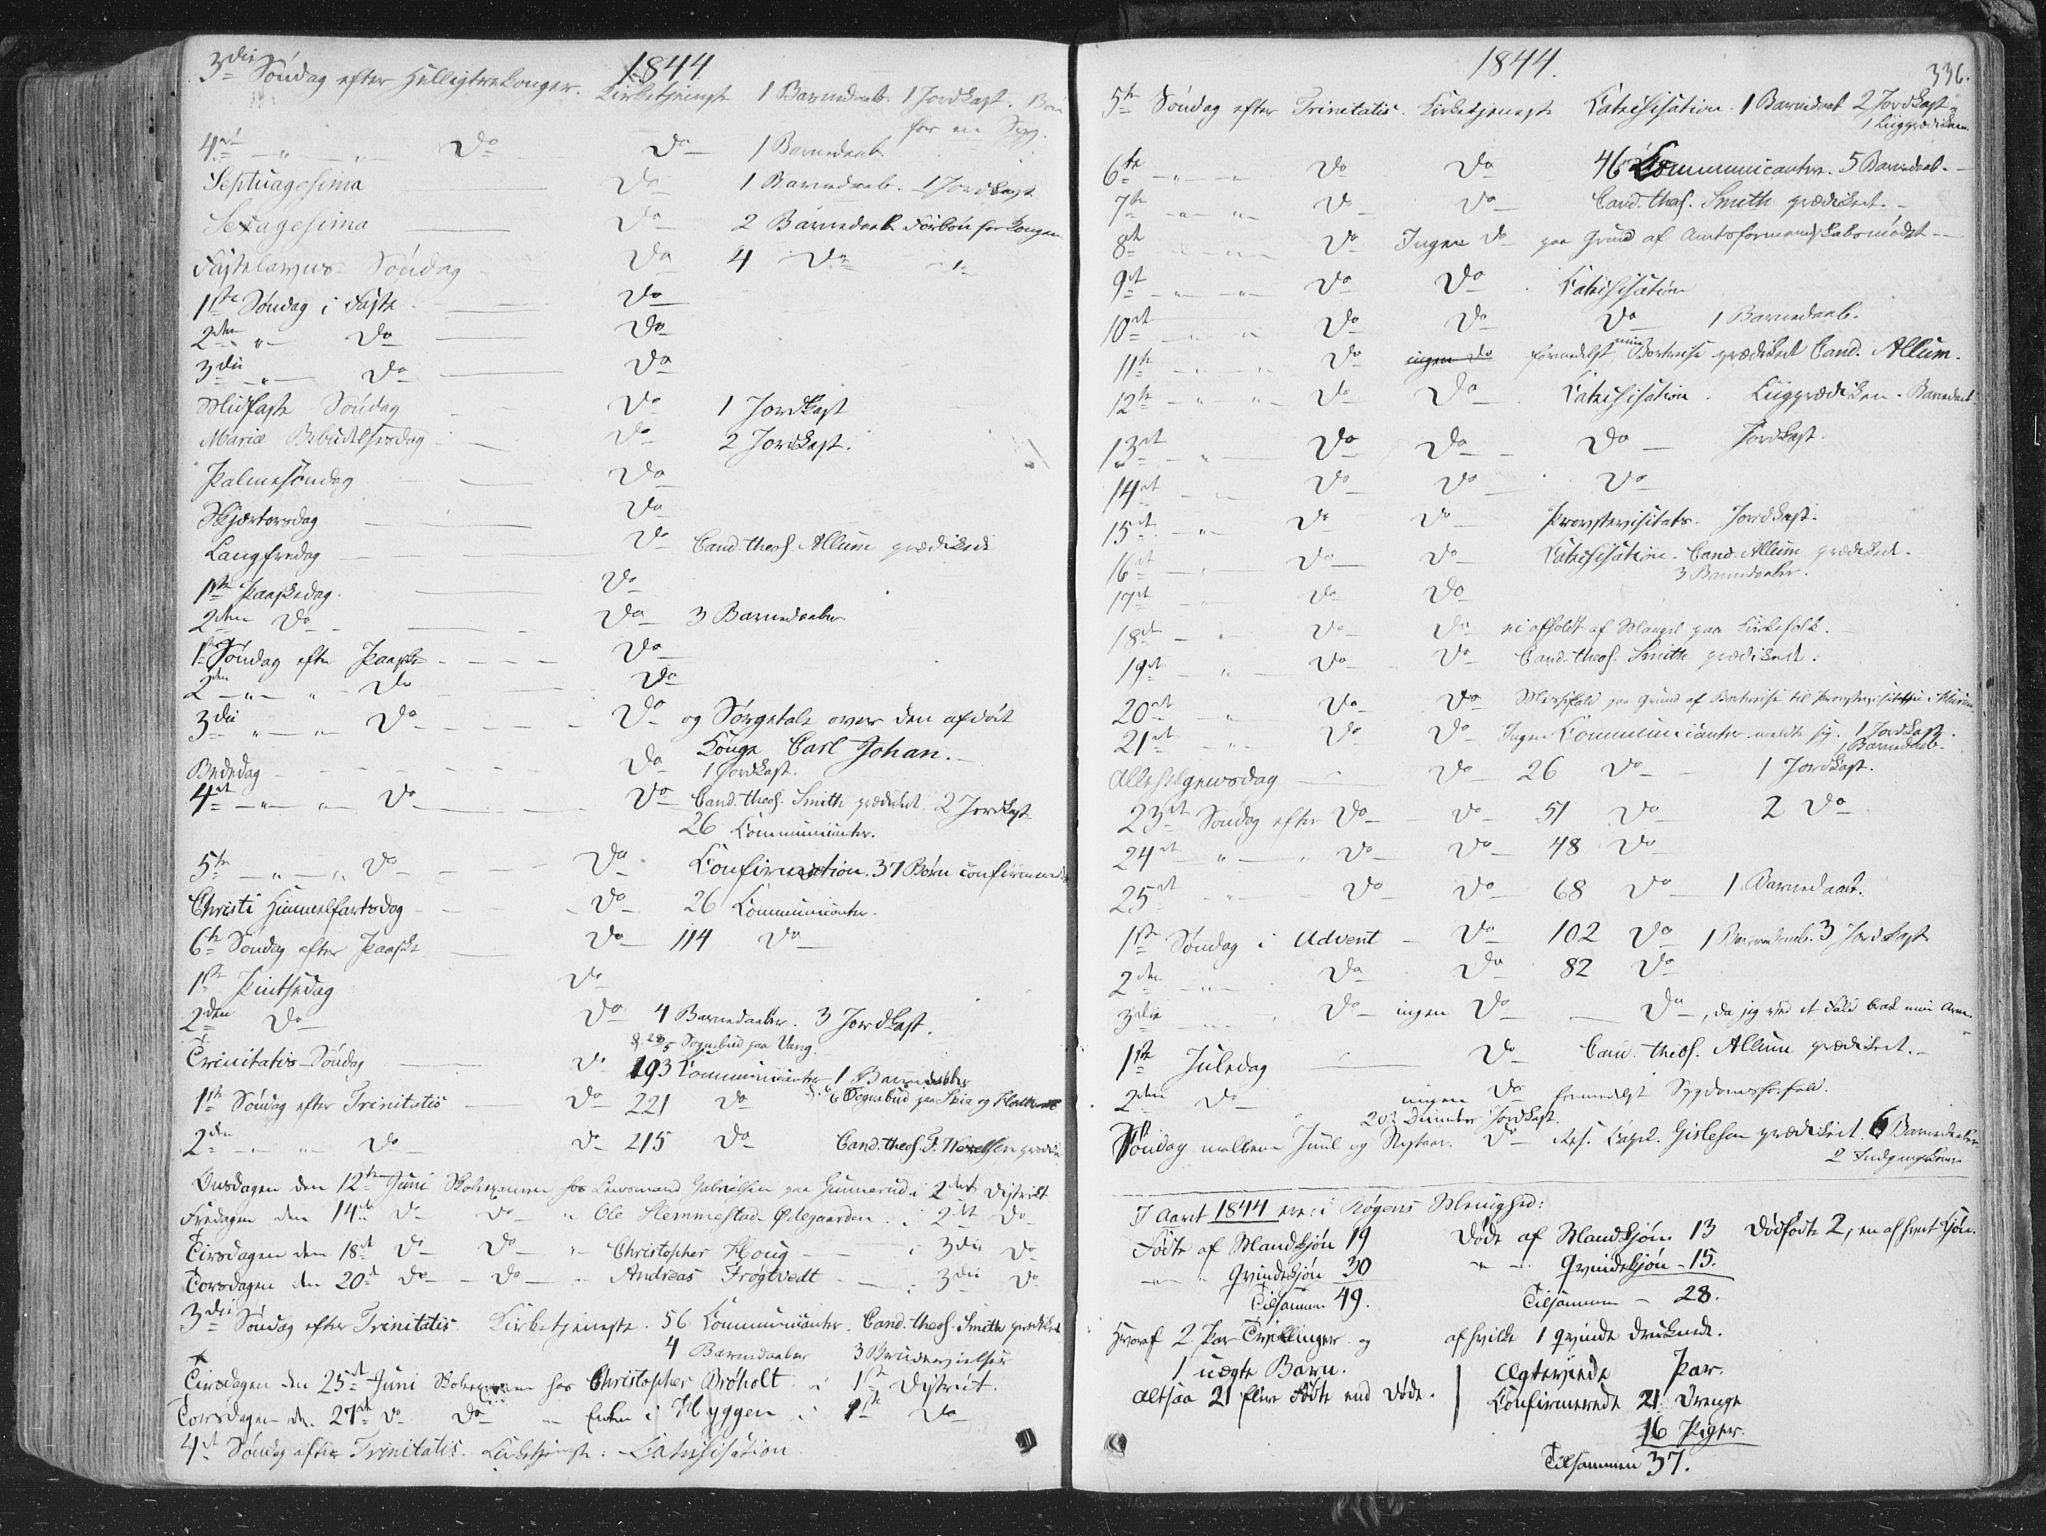 1844
3die Søndag efter Helligtrekonger. Kirketjeneste 1 Barnedaab. 1 Jordkast. Bøn
for en Syg.
4de — " — Do Do 1 Barnedaab
Septuagesima Do 1 Barnedaab. 1 Jordkast
Sexagesima Do 2 Barnedaab Forbøn for Kongen
Fastelavns Søndag Do 4 Do
1ste Søndag i Faste Do
2den " Do Do
3die " Do Do
Midfaste Søndag Do 1 Jordkast
Mariæ Bebudelsesdag Do 2 Jordkast.
Palmesøndag Do
Skjærtorsdag Do
Langfredag Do Cand. theol. Allum prædikede
1ste Paaskedag. Do
2den Do Do 3 Barnedaaber.
1ste Søndag efter Paaske Do
2den " " Do Do
3die " " Do Do og Sørgetale over den afdøde
Konge Carl Johan.
Bededag Do 1 Jordkast.
4de " " Do Do Cand. theol. Smith prædikede. 2 Jordkast
26 Communicanter.
5te " " Do Do Confirmation. 37 Børn confirmerede
Christi Himmelfartsdag Do 26 Communicanter.
6te Søndag efter Paaske Do 114 Do
1ste Pintsedag Do
2den Do Do 4 Barnedaaber. 3 Jordkast.
d. 28/5 Sognebud paa Vang.
Trinitatis-Søndag Do 193 Communicanter 1 Barnedaab
1ste Søndag efter Trinitatis Do 221 Do Sognebud paa
2den " " Do Do 215 Do Cand. theol. F. Wexelsen prædik.
Onsdagen den 12te Juni Skoleexamen hos Lensmand Gabrielsen paa Gunnerud i 2det Distrikt
Fredagen den 14de Do Do " Ole Hemmestad-Ødegaarden i 2det Do
Tirsdagen den 18de Do Do " Christopher Houg i 3die Do
Torsdagen den 20de Do Do " Andreas Frøgtvedt 3die Do
3die Søndag efter Trinitatis Kirketjeneste. 56 Communicanter. Cand. theol. Smith prædiked
4 Barnedaaber 3 Brudevielser
Tirsdagen den 25de Juni Skoleexamen hos Christopher Brøholt i 1ste Distrikt.
Torsdagen den 27de Do Do " Enken i Hyggen i 1ste Do
4de Søndag efter Trinitatis. Kirketjeneste: Catechisation
1844. 336.
5te Søndag efter Trinitatis. Kirketjeneste Catechisation. 1 Barnedaab 2 Jordkast
1 Liigprædiken
6te " " Do Do 46 Communicanter. 5 Barnedaab.
7de " " Do Do Cand. theol. Smith prædikede.
8de Do Ingen Do paa Grund af Amtsformandskabsmødet
9de " " Do Do Catechisation
10de Do Do Do 1 Barnedaab.
11te Do ingen Do formedelst min Bortreise prædikede Cand. Allum.
12te Do Do Catechisation. Liigprædiken. Barnedaab
13de Do Do Do Jordkast.
14de Do Do Do
15de Do Do Provstevisitats. Jordkast.
16de Do Do Catechisation. Cand. Allum prædikede.
3 Barnedaaber.
17de Do Do
18de Do Do ei afholdt af Mangel paa Kirkefolk.
19de Do Do Cand. theol. Smith prædikede.
20de Do Do Messefald paa Grund af Bortreise til Provstevisitatsen i
21de Do Do Ingen Communicanter meldte sig. 1 Jordkast.
1 Barnedaab.
Allehelgensdag Do 26 Do 1 Jordkast.
23de Søndag efter Do Do 51 Do 2 Do
24de " " Do Do 48 Do
25de Do Do 68 Do 1 Barnedaab.
1ste Søndag i Advent Do 102 Do 1 Barnedaab. 3 Jordkast
2den " Do Do 82 Do
3die Do ingen Do Do, da jeg ved et Fald brak min Arm.
1ste Juledag Do Cand. theol. Allum prædikede.
2den Do ingen Do formedelst Sygdomsforfald.
20de December Jordkast.
Søndag mellem Juul og Nytaar. Do Res. Capel. Gislesen prædikede. 6 Barnedaaber
2 Indgangskoner
I Aaret 1844 ere i Røgens Menighed:
Fødte af Mandkjøn 19 Døde af Mandkjøn 13 Dødfødte 2, en af hvert Kjøn.
" " Qvindekjøn 30 " " Qvindekjøn 15.
Tilsammen 49. Tilsammen 28.
Hvoraf 2 Par Tvillinger og af hvilke 1 Qvinde druknede.
1 uægte Barn. Ægteviede Par.
Altsaa 21 flere Fødte end Døde. Confirmerede 21 Drenge
16 Piger.
Tilsammen 37.